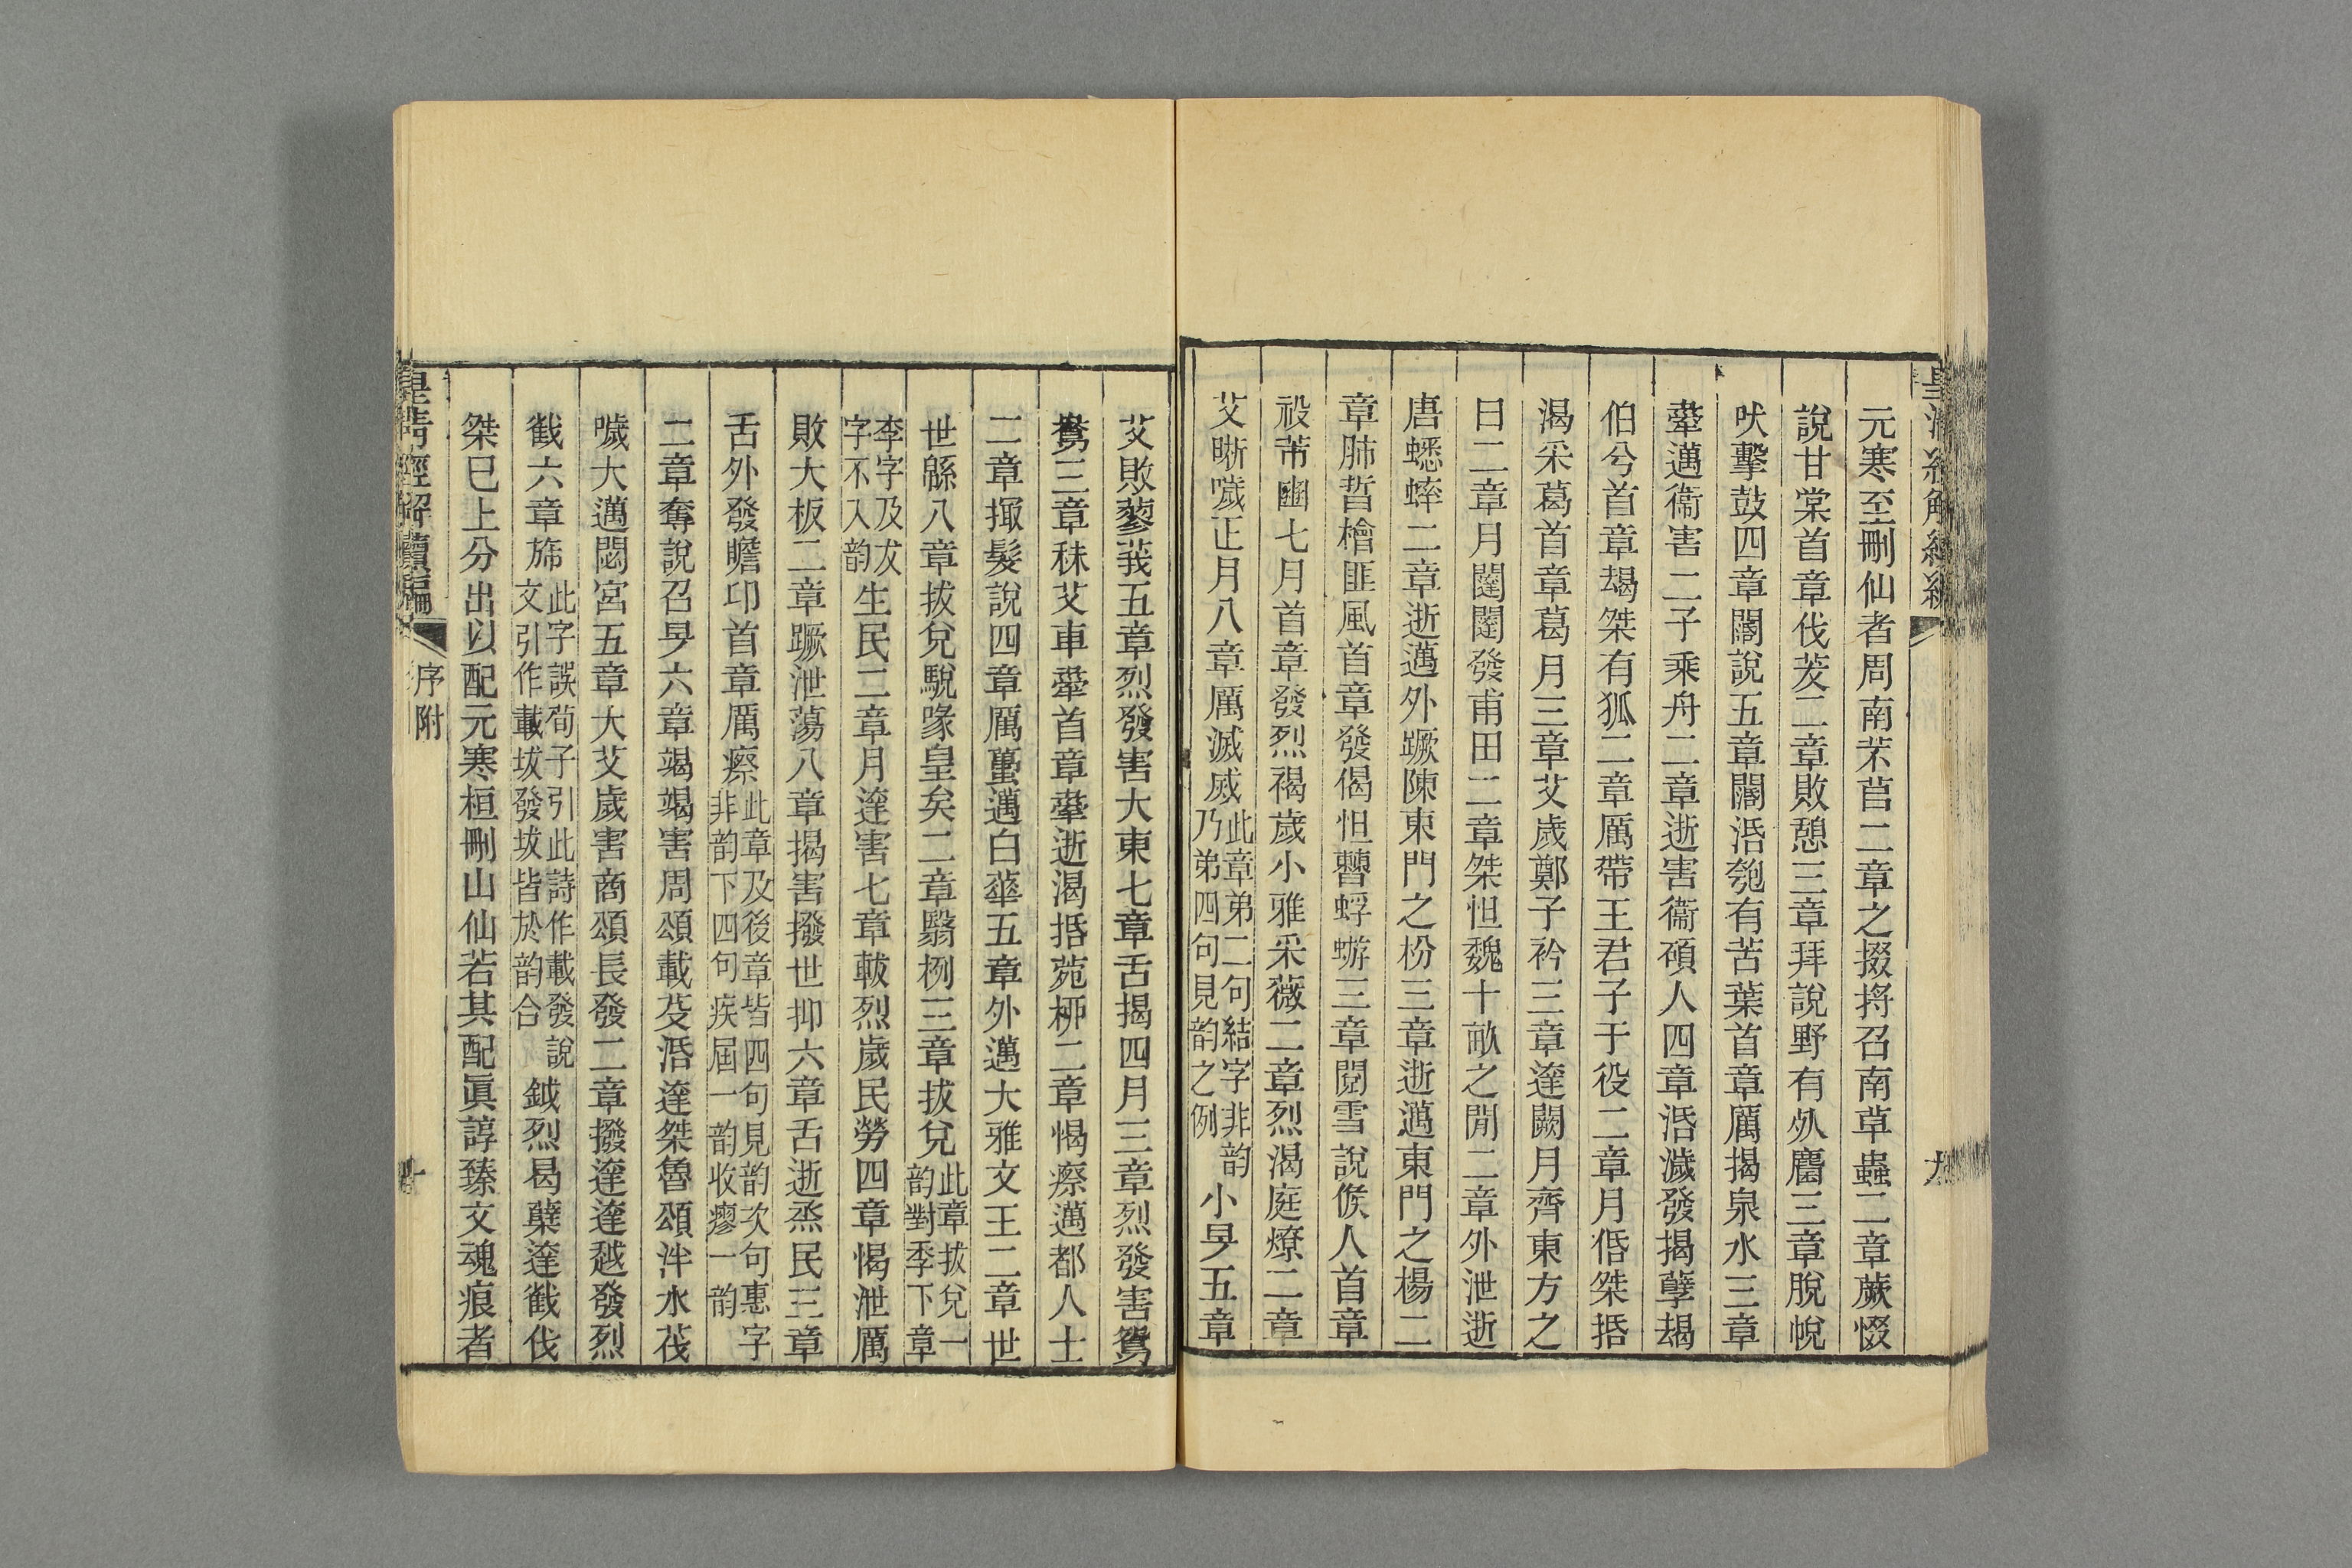 皇清經解續編 九
元寒至刪仙者周南芣苢二章之掇捋召南草蟲二章蕨惙
說甘棠首章伐茇二章敗憩三章拜說野有死麕三章脫帨
吠擊鼓四章闊說五章闊活匏有苦葉首章厲揭泉水三章
舝邁衞害二子乘舟二章逝害衞碩人四章活濊發揭孽朅
伯兮首章朅桀有狐二章厲帶王君子于役二章月佸桀括
渴采葛首章葛月三章艾歲鄭子衿三章達闕月齊東方之
日二章月闥闥發甫田二章桀怛魏十畝之閒二章外泄逝
唐蟋蟀二章逝邁外蹶陳東門之枌三章逝邁東門之楊二
章肺晢檜匪風首章發偈怛曹蜉蝣三章閱雪說候人首章
祋芾豳七月首章發烈褐歲小雅采薇二章烈渴庭燎二章
艾晣噦正月八章厲滅烕此章弟二句結字非韵乃弟四句見韵之例小旻五章
艾敗蓼莪五章烈發害大東七章舌揭四月三章烈發害鴛
鴦三章秣艾車舝首章舝逝渴括菀柳二章愒瘵邁都人士
二章撮髮說四章厲蠆邁白華五章外邁大雅文王二章世
世緜八章拔兌駾喙皇矣二章翳栵三章拔兌此章拔兌一韵對季下章
李字及犮字不入韵生民二章月達害七章軷烈歲民勞四章愒泄厲
敗大板二章蹶泄蕩八章揭害撥世抑六章舌逝烝民三章
舌外發瞻卬首章厲瘵此章及後章皆四句見韵次句惠字非韵下四句疾屆一韵收瘳一韵
二章奪說召旻六章竭竭害周頌載芟活達桀魯頌泮水茷
噦大邁閟宮五章大艾歲害商頌長發二章撥達達越發烈
截六章旆此字誤荀子引此詩作載發說文引作載坺發坺皆於韵合鉞烈曷蘖達截伐
桀已上分出以配元寒桓刪山仙若其配眞諄臻文魂痕者
皇清經解續編 序附 十